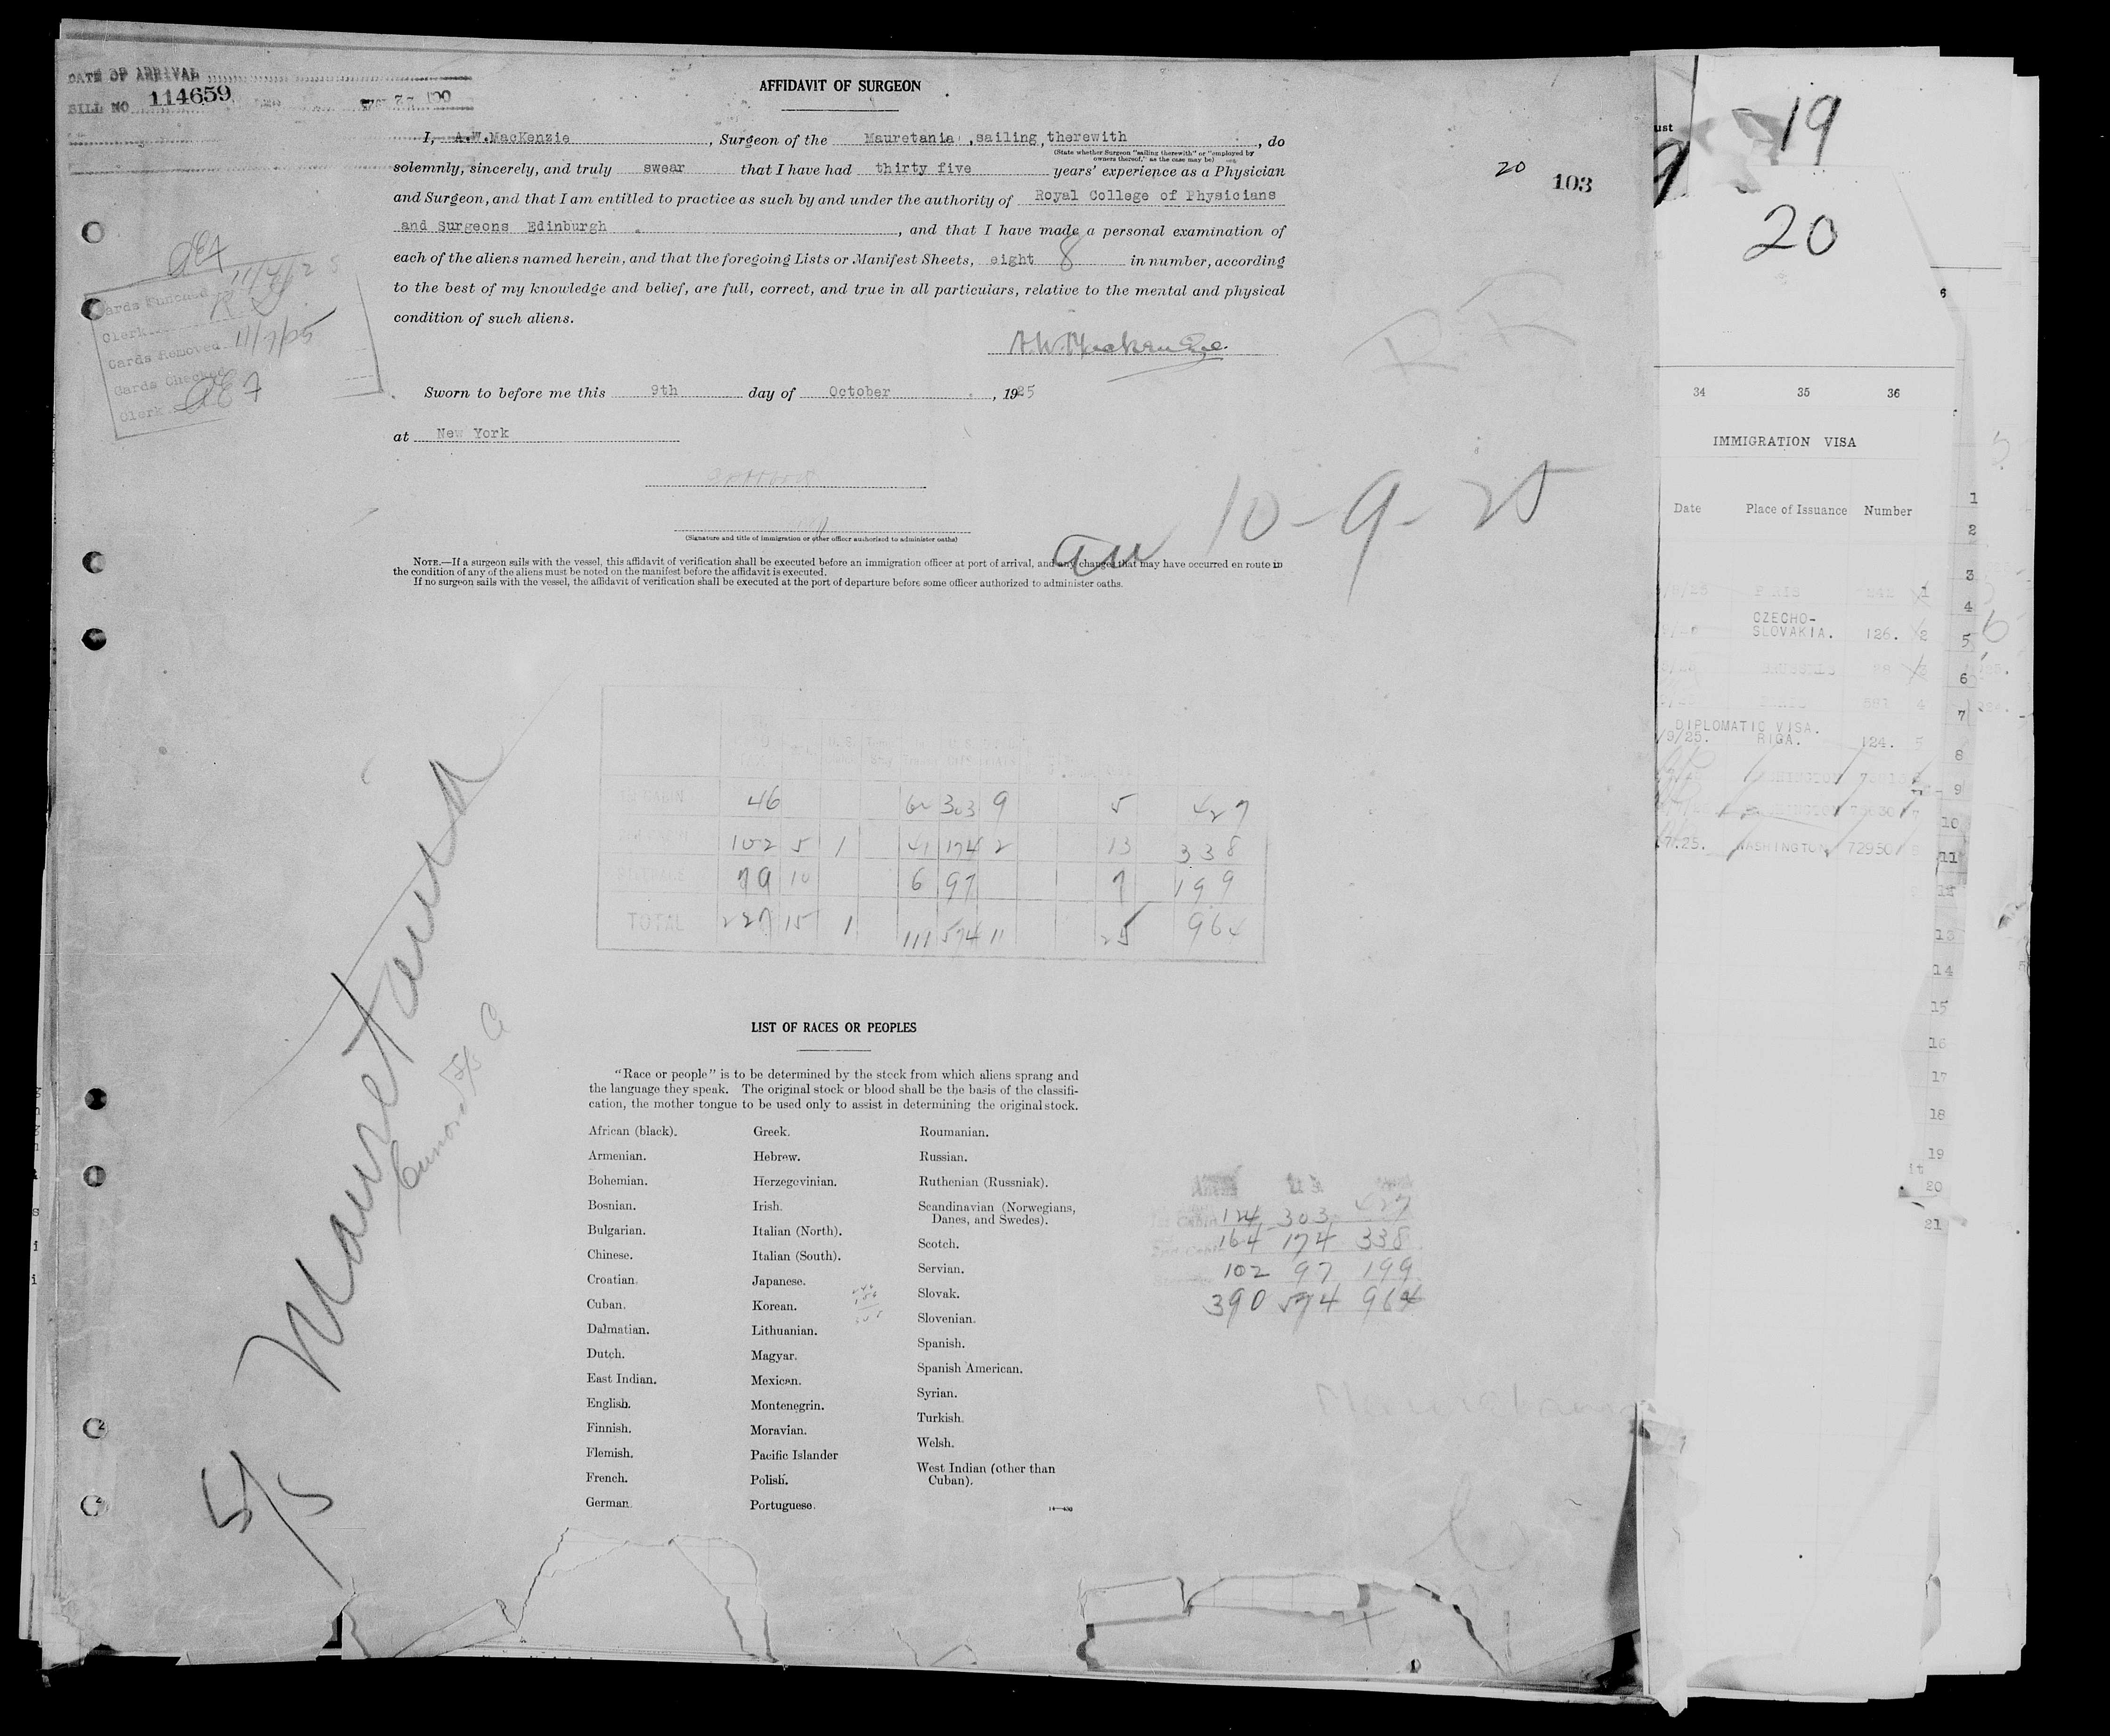 DATE OF ARRIVAL
BILL NO 114659
AFFIDAVIT OF SURGEON
I, A.W.MacKenzie, Surgeon of the Mauretania, sailing, therewith, do
(State whether Surgeon "sailing therewith" or "employed by
owners thereof," as the case may be)
solemnly, sincerely, and truly swear that I have had thirty five years' experience as a Physician
and Surgeon, and that I am entitled to practice as such by and under the authority of Royal College of Physicians
and Surgeons Edinburgh, and that I have made a personal examination of
each of the aliens named herein, and that the foregoing Lists or Manifest Sheets, eight 8 in number, according
to the best of my knowledge and belief, are full, correct, and true in all particulars, relative to the mental and physical
condition of such aliens.
A.W. Mackenzie
Sworn to before me this 9th day of October, 1925
at New York
(Signature and title of immigration or other officer authorized to administer oaths)
10-9-25
NOTE.—If a surgeon sails with the vessel, this affidavit of verification shall be executed before an immigration officer at port of arrival, and any changes that may have occurred en route in
the condition of any of the aliens must be noted on the manifest before the affidavit is executed.
If no surgeon sails with the vessel, the affidavit of verification shall be executed at the port of departure before some officer authorized to administer oaths.
20 103
Cards Punched
Clerk
Cards Removed 11/7/25
Cards Checked
Clerk
46 303 9 5 427
102 5 1 41 174 2 13 338
79 10 6 97 7 199
TOTAL 227 15 1 111 574 11 25 964
Mauretania
Cunard S/S Co
5/5
LIST OF RACES OR PEOPLES
"Race or people" is to be determined by the stock from which aliens sprang and
the language they speak. The original stock or blood shall be the basis of the classifi-
cation, the mother tongue to be used only to assist in determining the original stock.
African (black).
Armenian.
Bohemian.
Bosnian.
Bulgarian.
Chinese.
Croatian.
Cuban.
Dalmatian.
Dutch.
East Indian.
English.
Finnish.
Flemish.
French.
German.
Greek.
Hebrew.
Herzegovinian.
Irish.
Italian (North).
Italian (South).
Japanese.
Korean.
Lithuanian.
Magyar.
Mexican.
Montenegrin.
Moravian.
Pacific Islander
Polish.
Portuguese.
Roumanian.
Russian.
Ruthenian (Russniak).
Scandinavian (Norwegians,
Danes, and Swedes).
Scotch.
Servian.
Slovak.
Slovenian.
Spanish.
Spanish American.
Syrian.
Turkish.
Welsh.
West Indian (other than
Cuban).
124 303 427
164 174 338
102 97 199
390 574 964
Mauretania
19
20
34 35 36
IMMIGRATION VISA
Date Place of Issuance Number
PARIS 1
CZECHO-
SLOVAKIA. 126. 2
BRUSSELS 88 3
4
DIPLOMATIC VISA.
/9/25. RIGA. 124. 5
WASHINGTON
WASHINGTON
7.25. WASHINGTON 72950
6
1
2
3
4
5
6
7
8
9
10
11
12
13
14
15
16
17
18
19
20
21